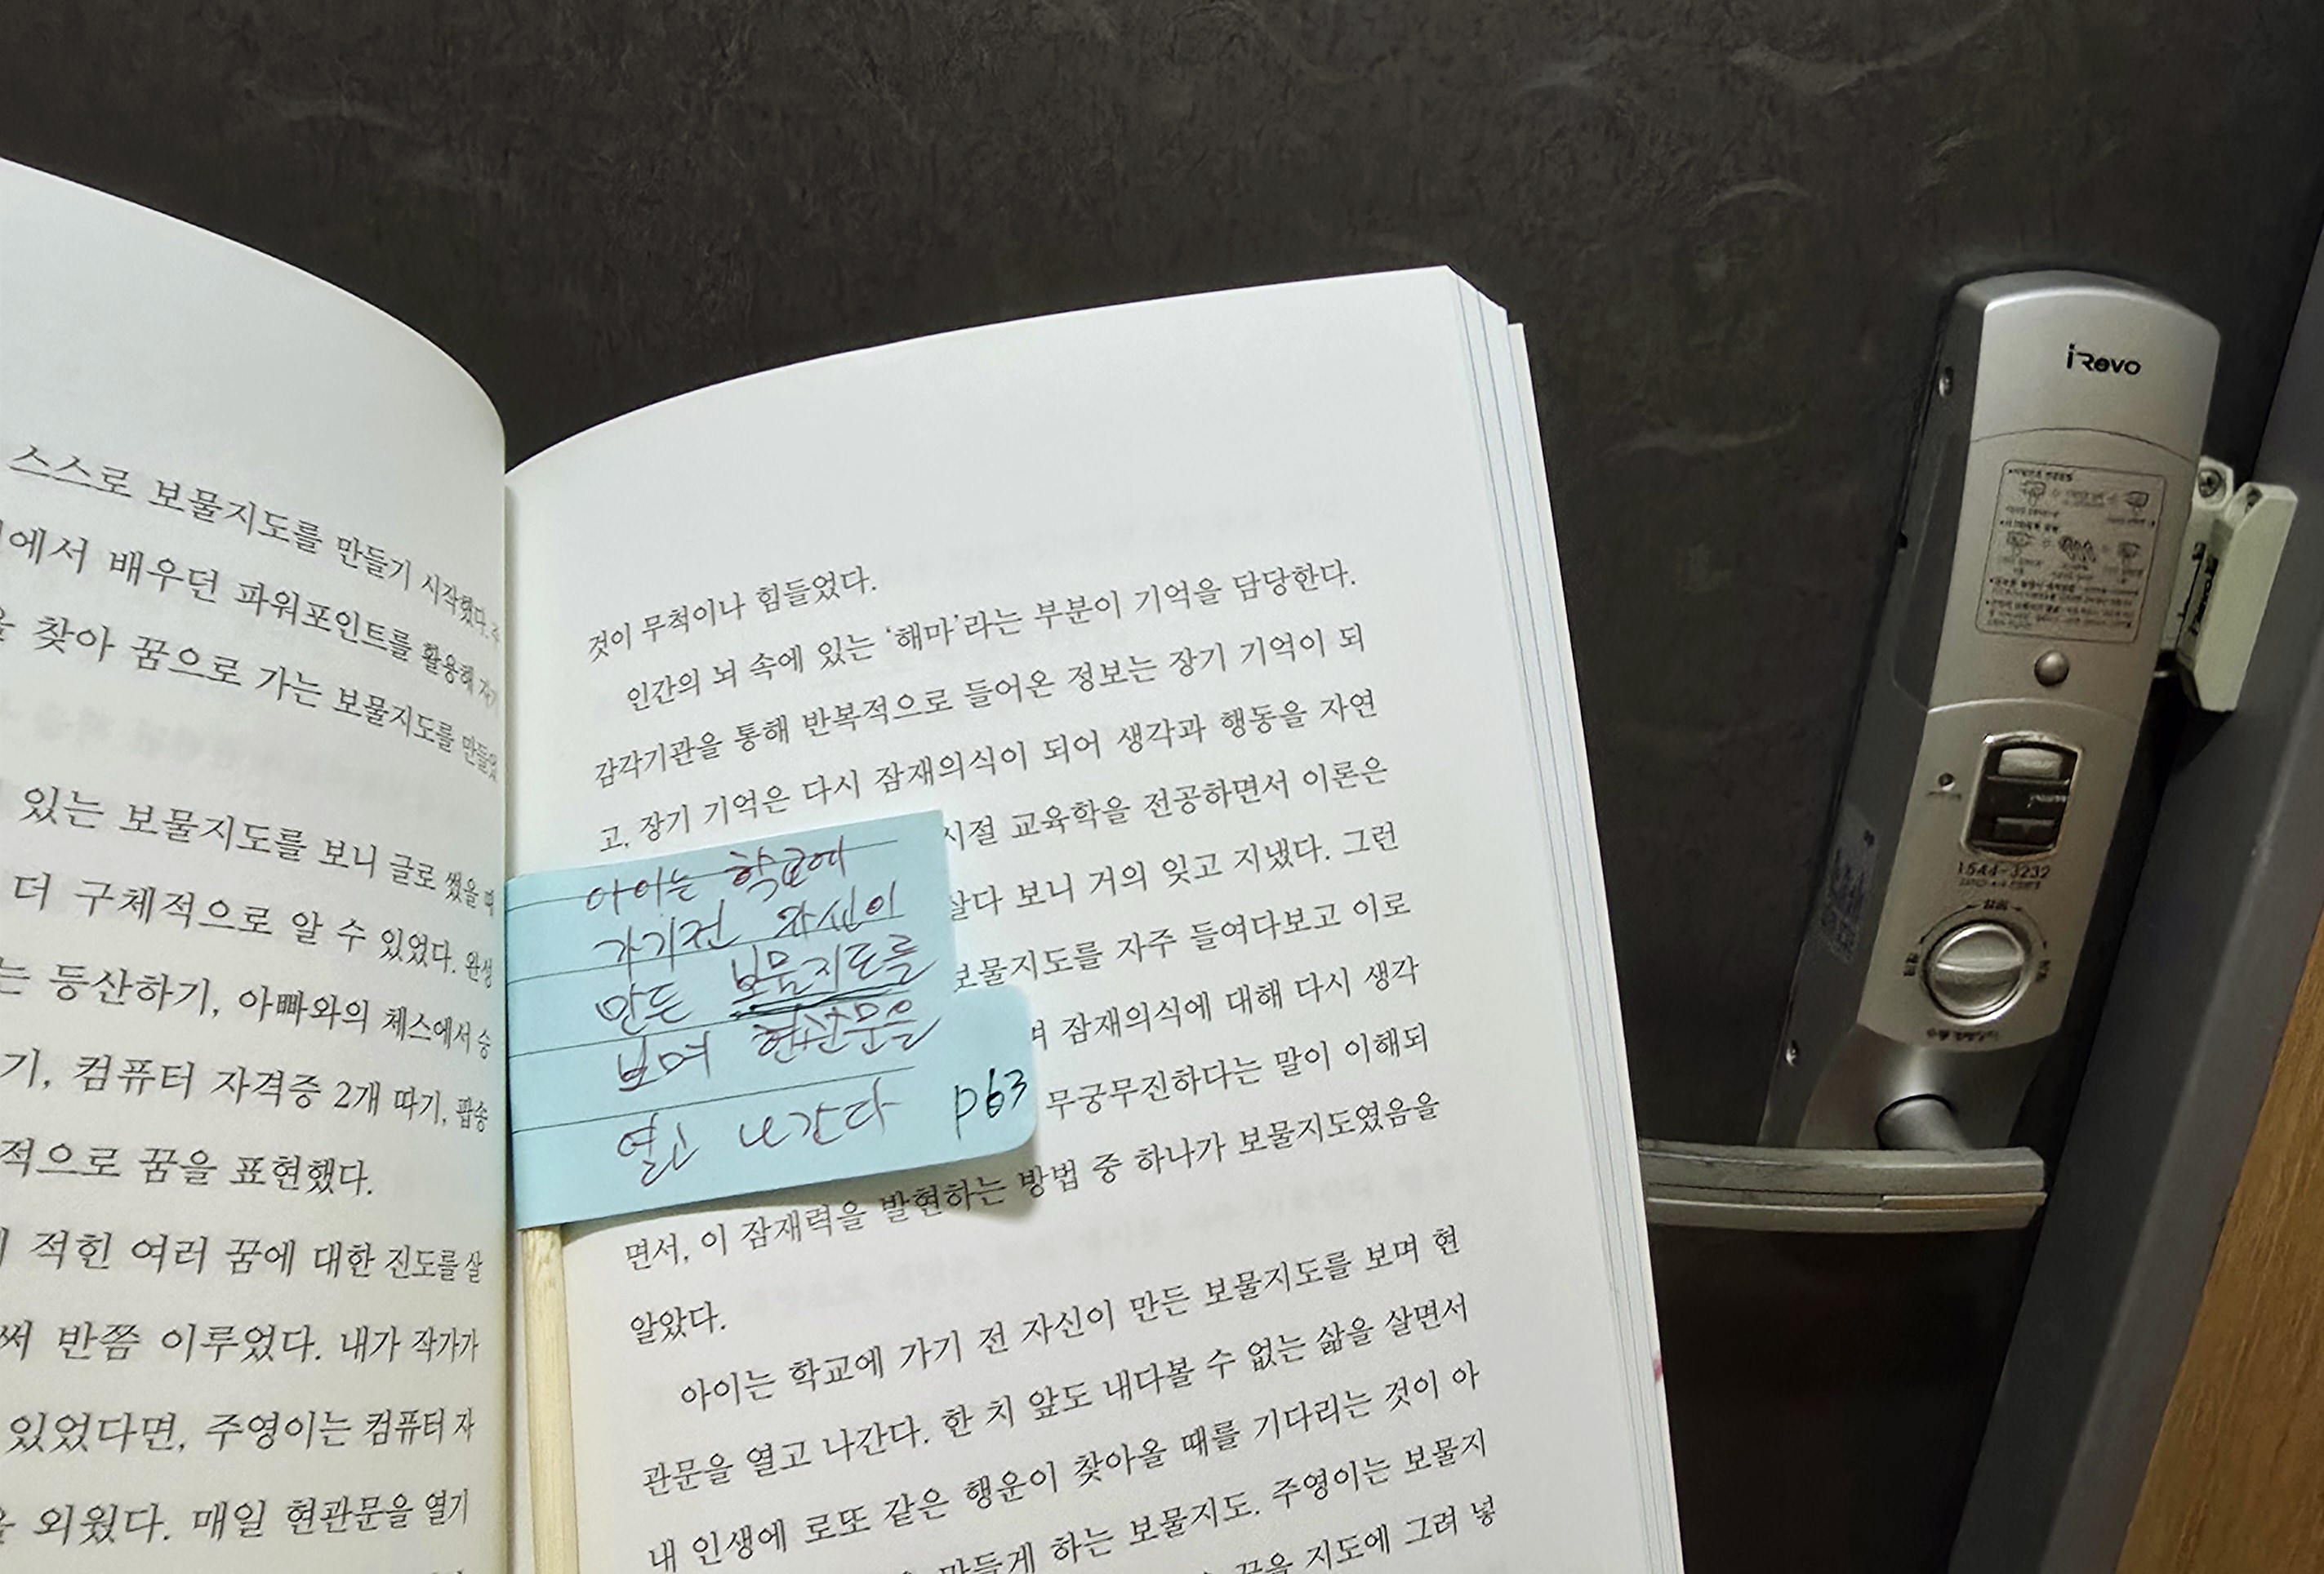 스스로 보물지도를 만들기 시작했다.
에서 배우던 파워포인트를 활용해
찾아 꿈으로 가는 보물지도를 만들었
있는 보물지도를 보니 글로 썼을 때
더 구체적으로 알 수 있었다. 완성
는 등산하기, 아빠와의 체스에서 승
기, 컴퓨터 자격증 2개 따기, 팝송
적으로 꿈을 표현했다.
적힌 여러 꿈에 대한 진도를 살
써 반쯤 이루었다. 내가 작가가
있었다면, 주영이는 컴퓨터 자
외웠다. 매일 현관문을 열기
것이 무척이나 힘들었다.
인간의 뇌 속에 있는 '해마'라는 부분이 기억을 담당한다.
감각기관을 통해 반복적으로 들어온 정보는 장기 기억이 되
고, 장기 기억은 다시 잠재의식이 되어 생각과 행동을 자연
시절 교육학을 전공하면서 이론은
살다 보니 거의 잊고 지냈다. 그런
보물지도를 자주 들여다보고 이로
며 잠재의식에 대해 다시 생각
무궁무진하다는 말이 이해되
면서, 이 잠재력을 발현하는 방법 중 하나가 보물지도였음을
알았다.
아이는 학교에 가기 전 자신이 만든 보물지도를 보며 현
관문을 열고 나간다. 한 치 앞도 내다볼 수 없는 삶을 살면서
내 인생에 로또 같은 행운이 찾아올 때를 기다리는 것이 아
만들게 하는 보물지도. 주영이는 보물지
꿈을 지도에 그려 넣
아이는 학교에
가기전 자신이
만든 보물지도를
보며 현관문을
열고 나간다 p63
iRevo
1544-3232